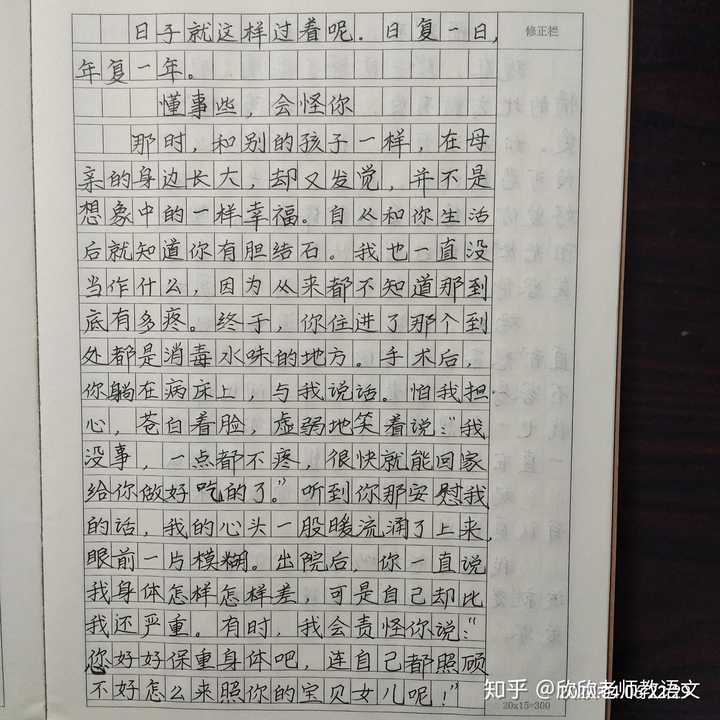 日子就这样过着呢.日复一日,
修正栏
年复一年。
懂事些,会怪你
那时,和别的孩子一样,在母
亲的身边长大,却又发觉,并不是
想象中的一样幸福。自从和你生活
后就知道你有胆结石。我也一直没
当作什么,因为从来都不知道那到
底有多疼。终于,你住进了那个到
处都是消毒水味的地方。手术后,
你躺在病床上,与我说话。怕我担
心,苍白着脸,虚弱地笑着说:“我
没事,一点都不疼,很快就能回家
给你做好吃的了。”听到你那安慰我
的话,我的心头一股暖流涌了上来,
眼前一片模糊。出院后,你一直说
我身体怎样怎样差,可是自己却比
我还严重。有时,我会责怪你说:“
您好好保重身体吧,连自己都照顾
不好怎么来照你的宝贝女儿呢!”
知乎 @欣欣老师教语文
20x15=300